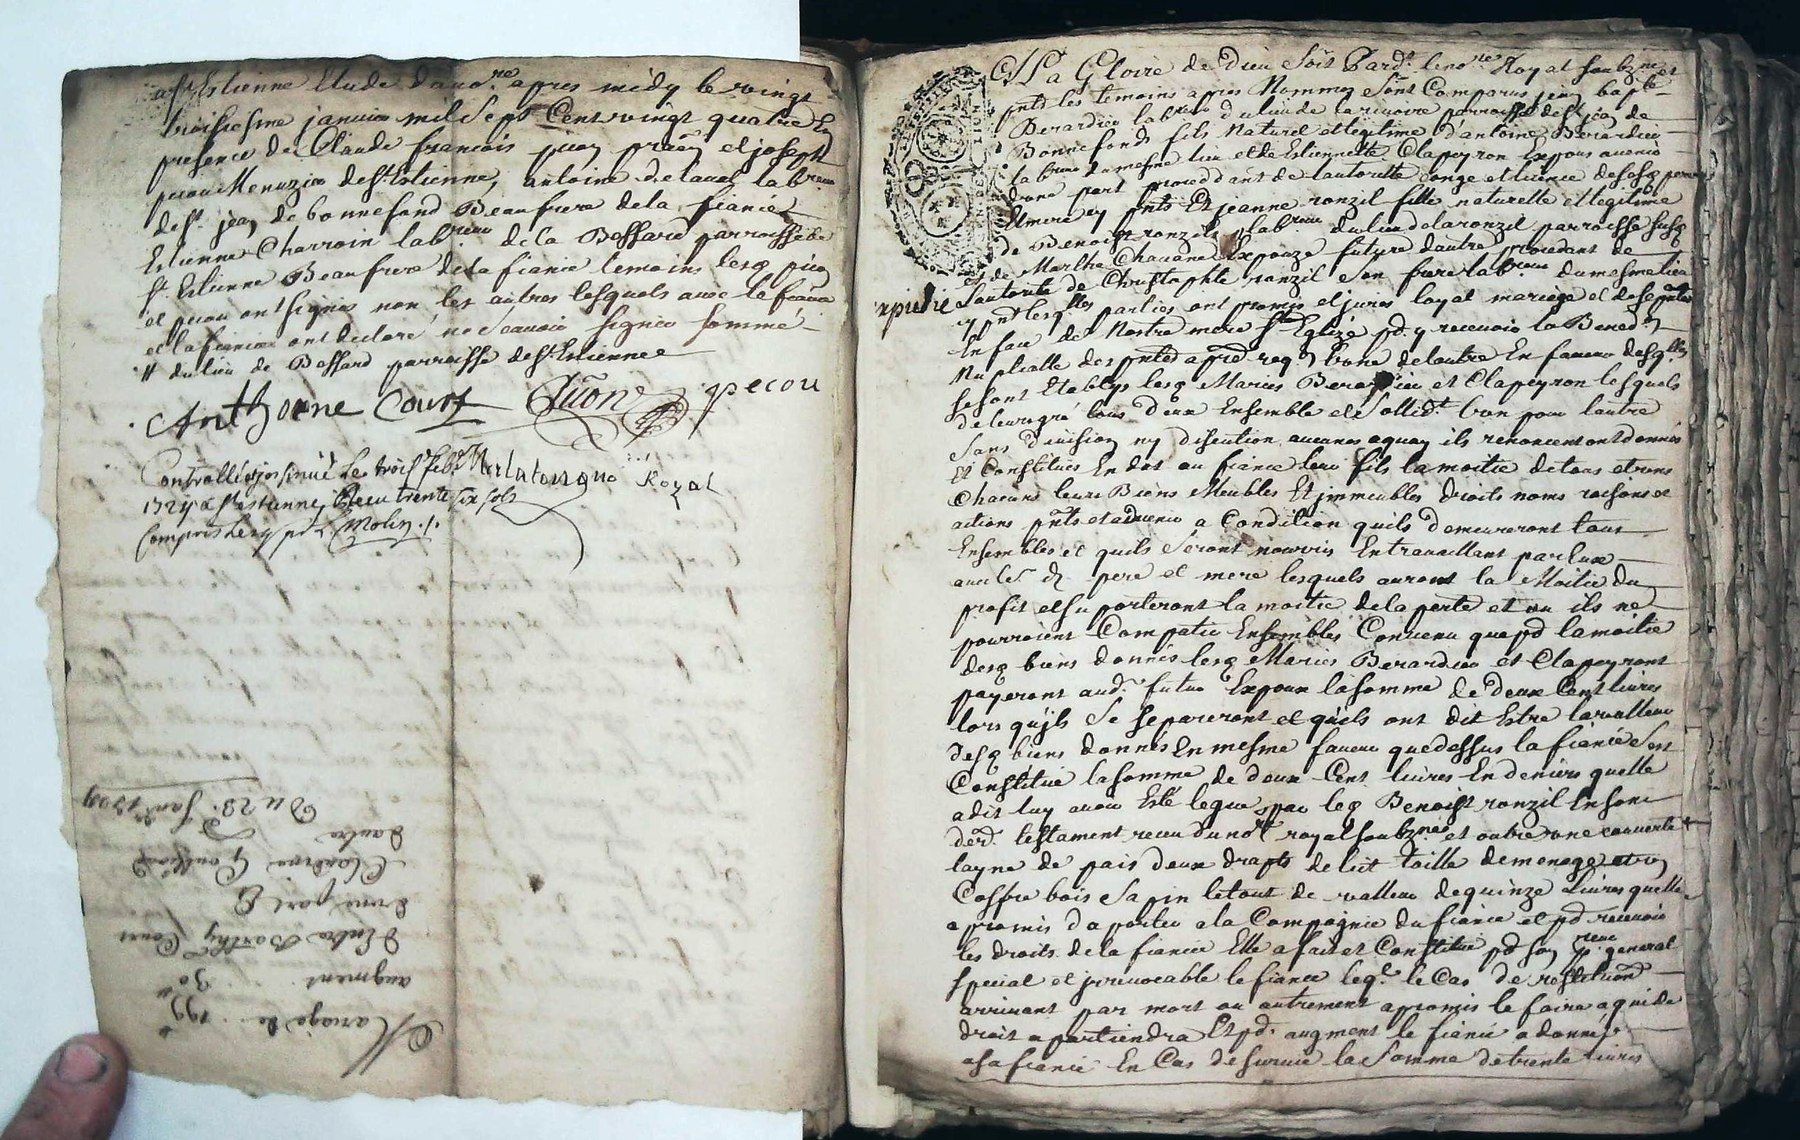 a St Estienne Etude dud no.re apres midy le vingt
troisiesme janvier mil Sept Cent vingt quatre En
presence de Claude francois picon prat.n et joseph
picou Menuzier de St Estienne, antoine delaval lab.reur
de St jean de bonnefond Beaufrere de la fiancée
Estienne Charroin lab.reur de la Bessard parroisse de
St Estienne Beaufrere de la fiancée temoins lesq picon
et picou ont signés non les autres lesquels avec le fiancé
et la fiancée ont declaré ne scavoir signer sommé
# du lieu de Bessard parroisse de St Estienne
Anthoene Court picon pecou
Controllé et insinué le trois feb.r
1724 a St estienne Receu trente six sols
Compris le
Molin
Royal
Mariage de .. 199
augment .. 30
D'entre Barth.y Court
d'une part &
Claudine
d'autre
Du 23.e Janv.r 1724
A La Gloire de Dieu Soit Pard.t le no.re Royal soubzne et
pntd les temoins apres Nommez Sont Comparus jean bapte
Berardier lab.reur du lieu de la riviere parroisse de St jean de
Bonnefonds fils Naturel et legitime d'antoine Berardier
lab.reur du mesme lieu et de Estiennette Clapeyron Expoux avenir
d'une part proceddant de l'autorité conge et licence de sesq pere
et mere cy pnts Et jeanne ronzil fille naturelle et legitime
de Benoist ronzil lab.reur du lieu de la ronzil parroisse susq
et de Marthe Chavane Expouze future d'autre procedant de
l'autorité de Christophle ronzil son frere lab.reur du mesme lieu
expiedie
cy pnt lesq.lles parties ont promis et jurés loyal mariage et de se pnter
En face de Nostre mere Ste Eglize pd y recevoir la Bened.on
Nuptialle des pntes a pre req.on l'une de l'autre En faveur desq.lles
se sont Etablys lesq Mariés Berardier et Clapeyron lesquels
de leur gré tous d'eux Ensemble et Sollid.t l'un pour l'autre
sans division ny discution aucunes aquoy ils renoncent ont donnés
Et Constitués En dot au fiancé leur fils la moitié de tous et uns
Chacuns leurs Biens Meubles Et jmmeubles droits noms raisons et
actions pnts et advenir a Condition quils demeureront tous
Ensembles et quils Seront nourris En travaillant par Eux
avec les d. pere et mere lesquels auront la Moitié du
profit et su porteront la moitie de la perte et ou ils ne
pourroient Compatir Ensembles Convenu que pd la moitie
desq biens donnés lesq Mariés Berardier et Clapeyront
payeront aud.t futur Expoux la somme de deux Cent livres
lors qu'jls Se separeront et quils ont dit Estre la valleur
desq biens donnés En mesme faveur que dessus la fiancée S'est
Constitué la somme de deux Cent livres En deniers quelle
a dit luy avoir Esté legué par leq Benoist ronzil En son
der.d testament receu du no.re royal soubznes et outre une couverte
layne de pais deux drapts de lit toille de menage et un
Coffre bois Sapin le tout de valleur de quinze Livres quelle
a promis d'aporter a la Compagnie du fiancé et pd recevoir
les droits de la fiancée Elle a fait et Constitué pd son p.reur general
special et jrrevocable le fiancé leq.l le Cas de restitu.on
arrivant par mort ou autrement a promis le faire a qui de
droit apartiendra Et pd. augment le fiancé a donné
a sa fiancée En Cas de survie la somme de trente livres